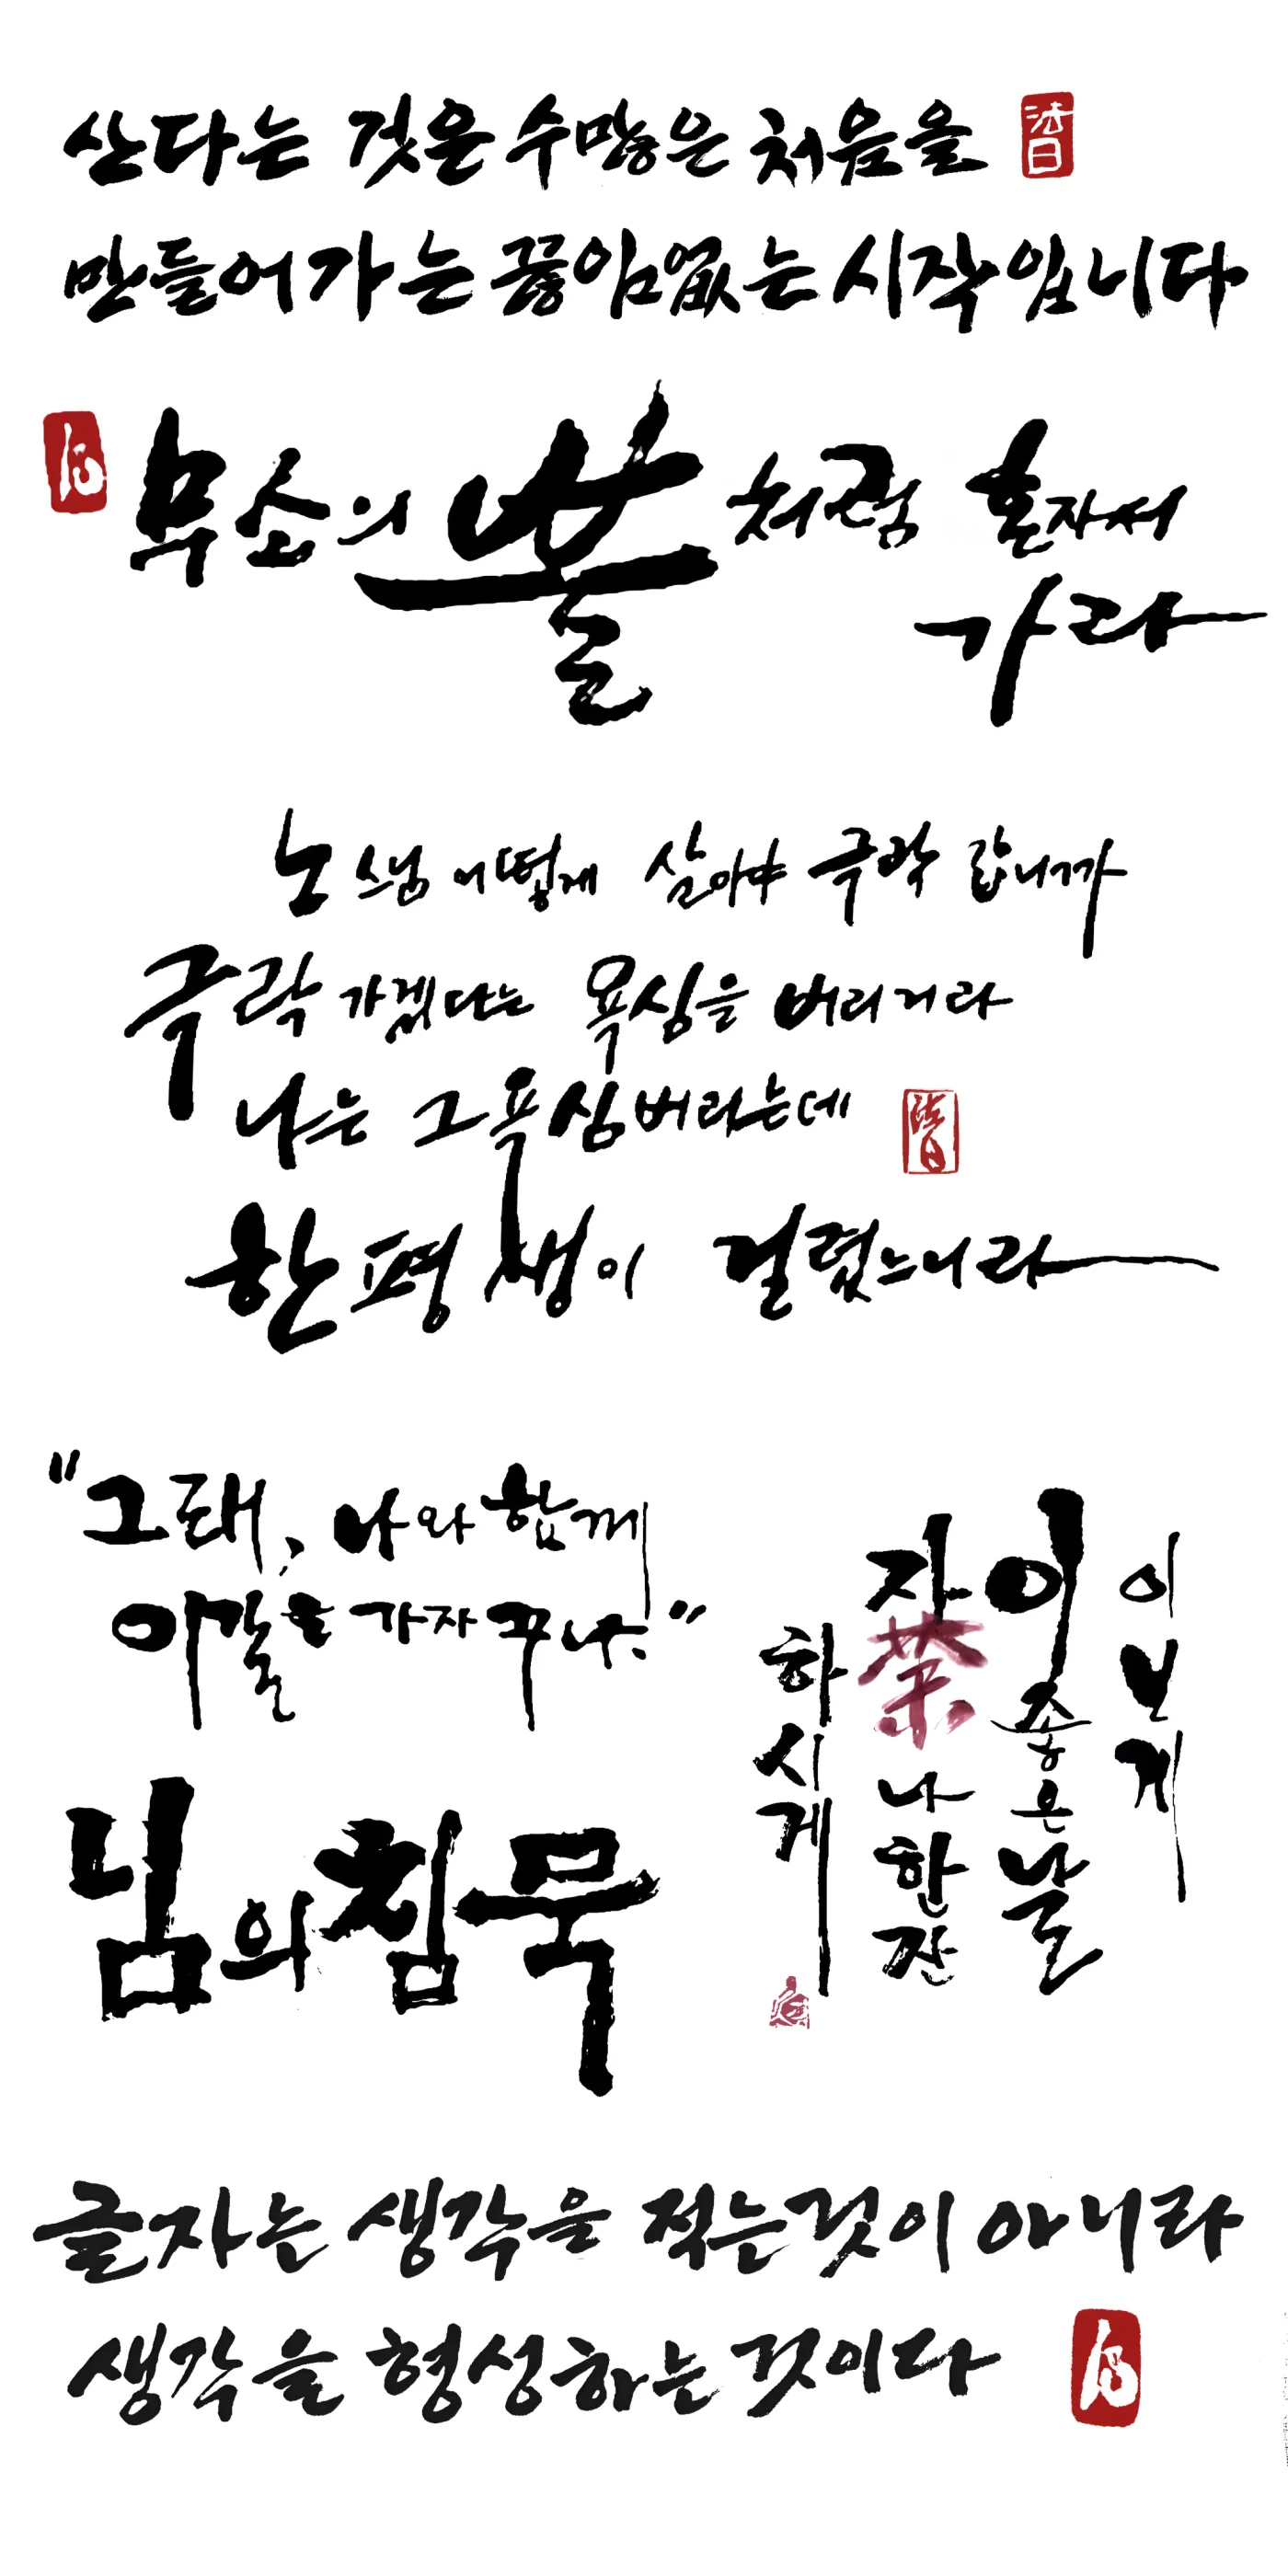 산다는 것은 수많은 처음을
法日
만들어가는 끊임없는 시작입니다
무소의 뿔처럼 혼자서
가라
노스님 어떻게 살아야 극락 갑니까
극락 가겠다는 욕심을 버리거라
나는 그 욕심 버리는데
法日
한평생이 걸렸느니라
"그래, 나와 함께
이 길을 가자꾸나."
이보게
이 좋은 날
자 茶나 한잔
하시게
님의 침묵
글자는 생각을 적는 것이 아니라
생각을 형성하는 것이다